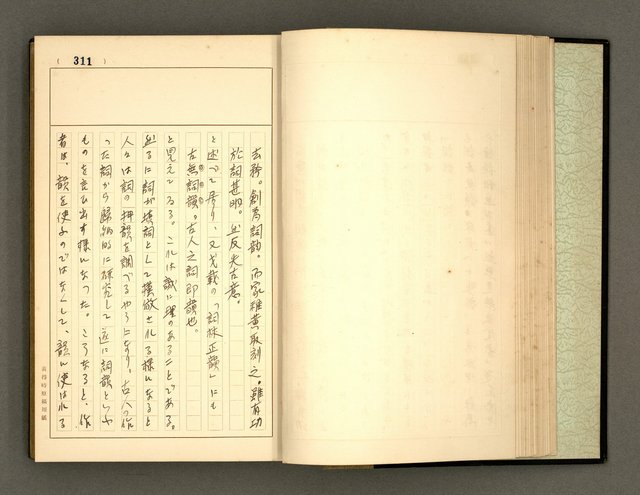 ( 311 )
去矜。創為詞韵。而家稚黄取刻之。雖有功
於詞甚明。然反失古意。
と述べて居り、又戈載の「詞林正韻」にも
古無詞韻。古人之詞即韻也。
と見えてゐる。これは誠に理のあることである。
然るに詞が填詞として模倣される様になると
人々は詞の押韻を調べるやうになり、古人の作
つた詞から歸納的に研究して遂に詞韻といふ
ものを見出す様になつた。こうなると、作
者は、韻を使ふのではなくして、韻に使はれる
黃得時原稿用紙